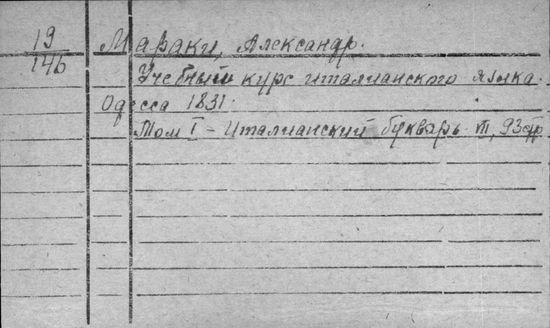 19
146
Мараки, Александр.
Учебный курс италианского языка.
Одесса 1831.
Том I - Италианский букварь. VII, 93 стр.